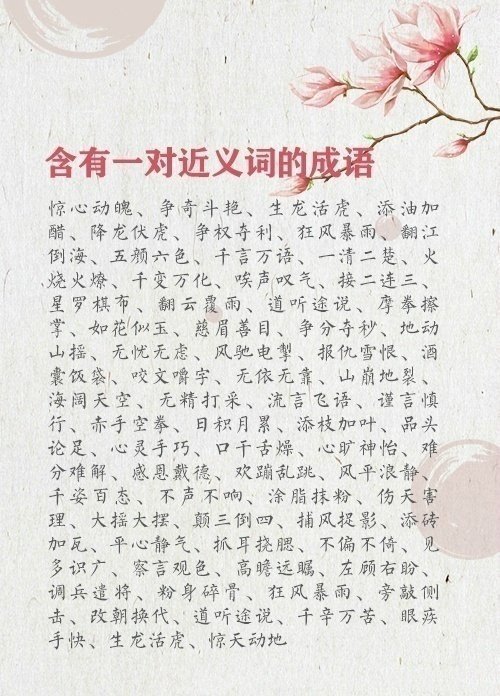 含有一对近义词的成语
惊心动魄、争奇斗艳、生龙活虎、添油加
醋、降龙伏虎、争权夺利、狂风暴雨、翻江
倒海、五颜六色、千言万语、一清二楚、火
烧火燎、千变万化、唉声叹气、接二连三、
星罗棋布、翻云覆雨、道听途说、摩拳擦
掌、如花似玉、慈眉善目、争分夺秒、地动
山摇、无忧无虑、风驰电掣、报仇雪恨、酒
囊饭袋、咬文嚼字、无依无靠、山崩地裂、
海阔天空、无精打采、流言飞语、谨言慎
行、赤手空拳、日积月累、添枝加叶、品头
论足、心灵手巧、口干舌燥、心旷神怡、难
分难解、感恩戴德、欢蹦乱跳、风平浪静、
千姿百态、不声不响、涂脂抹粉、伤天害
理、大摇大摆、颠三倒四、捕风捉影、添砖
加瓦、平心静气、抓耳挠腮、不偏不倚、见
多识广、察言观色、高瞻远瞩、左顾右盼、
调兵遣将、粉身碎骨、狂风暴雨、旁敲侧
击、改朝换代、道听途说、千辛万苦、眼疾
手快、生龙活虎、惊天动地